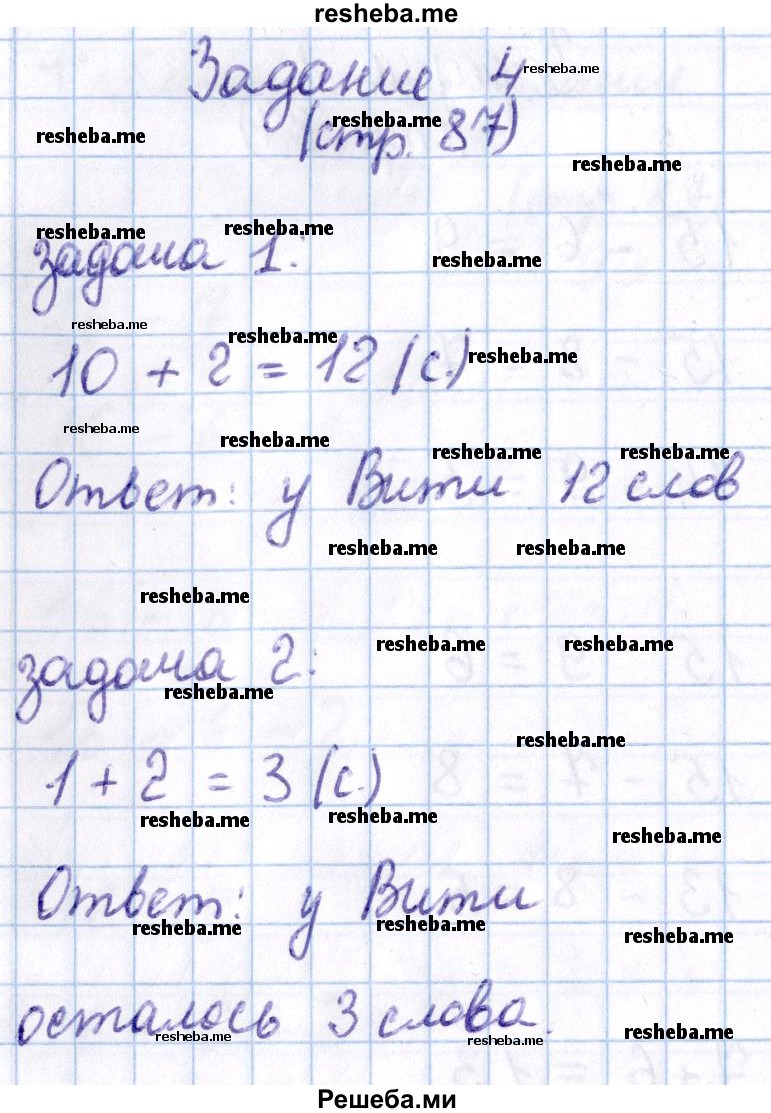 resheba.me
Задание 4
resheba.me
resheba.me
resheba.me
(стр. 87)
resheba.me
resheba.me
resheba.me
задача 1:
resheba.me
resheba.me
resheba.me
resheba.me
10 + 2 = 12 (с.)
resheba.me
resheba.me
resheba.me
resheba.me
Ответ: у Вити 12 слов
resheba.me
resheba.me
resheba.me
resheba.me
resheba.me
задача 2:
resheba.me
resheba.me
1 + 2 = 3 (с.)
resheba.me
resheba.me
resheba.me
Ответ: у Вити
resheba.me
resheba.me
resheba.me
осталось 3 слова.
resheba.me
resheba.me
resheba.me
Решеба.ми